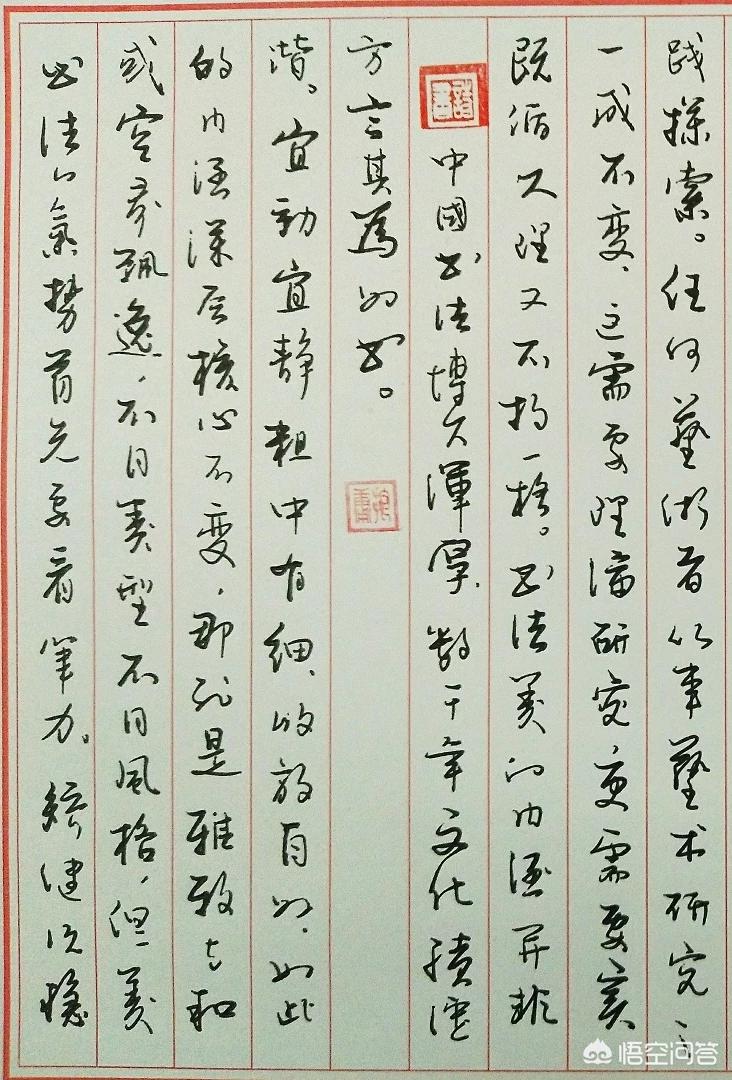 书法的氣势首先要看笔力。矫健沉稳
或空灵飘逸，不同类型不同风格，但美
的内涵深层核心不变，那就是雅致与和
谐。宜动宜静粗中有细、收放自如，如此
方言其為如书。
中國书法博大渾厚，数千年文化積淀
既循大理又不拘一格。书法美的内涵并非
一成不变、这需要理论研究更需要实
践探索。任何藝術者从事藝术研究
悟空问答